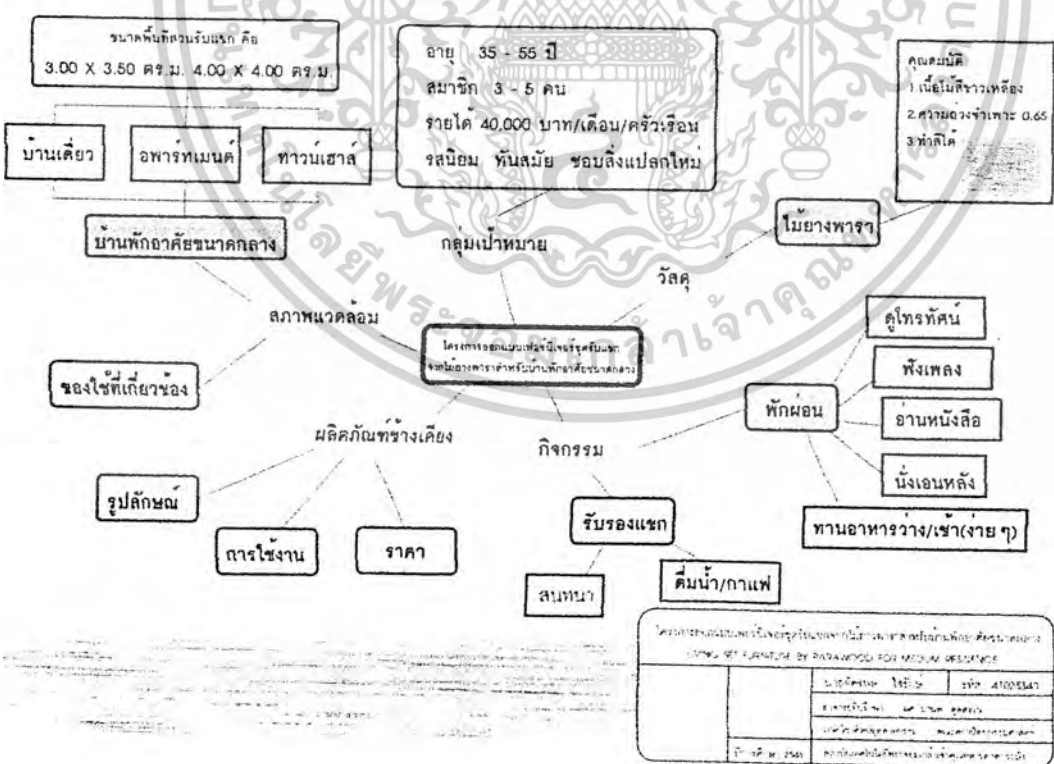 ขนาดพื้นที่ส่วนรับแขก คือ
3.00 X 3.50 ตร.ม. 4.00 X 4.00 ตร.ม.
บ้านเดี่ยว
อพาร์ทเมนต์
ทาวน์เฮาส์
บ้านพักอาศัยขนาดกลาง
อายุ 35 - 55 ปี
สมาชิก 3 - 5 คน
รายได้ 40,000 บาท/เดือน/ครัวเรือน
รสนิยม ทันสมัย ชอบสิ่งแปลกใหม่
คุณสมบัติ
1.เนื้อไม้สีขาวเหลือง
2.ความถ่วงจำเพาะ 0.65
3.ทำสีได้
ไม้ยางพารา
กลุ่มเป้าหมาย
วัสดุ
สภาพแวดล้อม
ของใช้ที่เกี่ยวข้อง
โครงการออกแบบเฟอร์นิเจอร์ชุดรับแขก
จากไม้ยางพาราสำหรับบ้านพักอาศัยขนาดกลาง
ดูโทรทัศน์
ฟังเพลง
พักผ่อน
อ่านหนังสือ
นั่งเอนหลัง
ทานอาหารว่าง/เช้า(ง่าย ๆ)
ผลิตภัณฑ์ข้างเคียง
กิจกรรม
รูปลักษณ์
การใช้งาน
ราคา
รับรองแขก
สนทนา
ดื่มน้ำ/กาแฟ
โครงการออกแบบเฟอร์นิเจอร์ชุดรับแขกจากไม้ยางพาราสำหรับบ้านพักอาศัยขนาดกลาง
LIVING SET FURNITURE BY PARAWOOD FOR MEDIUM RESIDENCE
รหัส